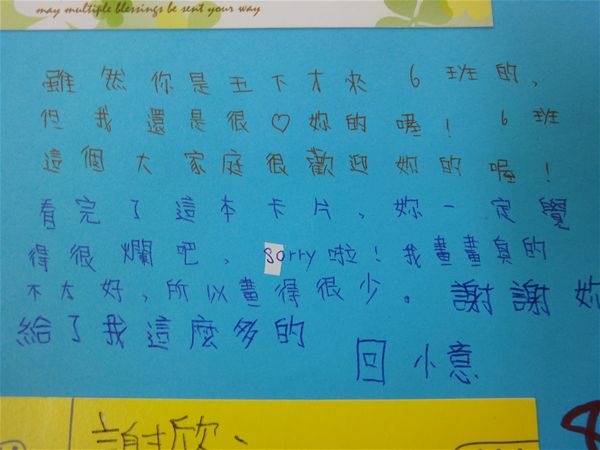 may multiple blessings be sent your way
雖然你是五下才來6班的、
但我還是很♡妳的喔！6班
這個大家庭很歡迎妳的喔！
看完了這本卡片、妳一定覺
得很爛吧、sorry啦！我畫畫真的
不太好、所以畫得很少。謝謝妳
給了我這麼多的
回小意
謝欣、